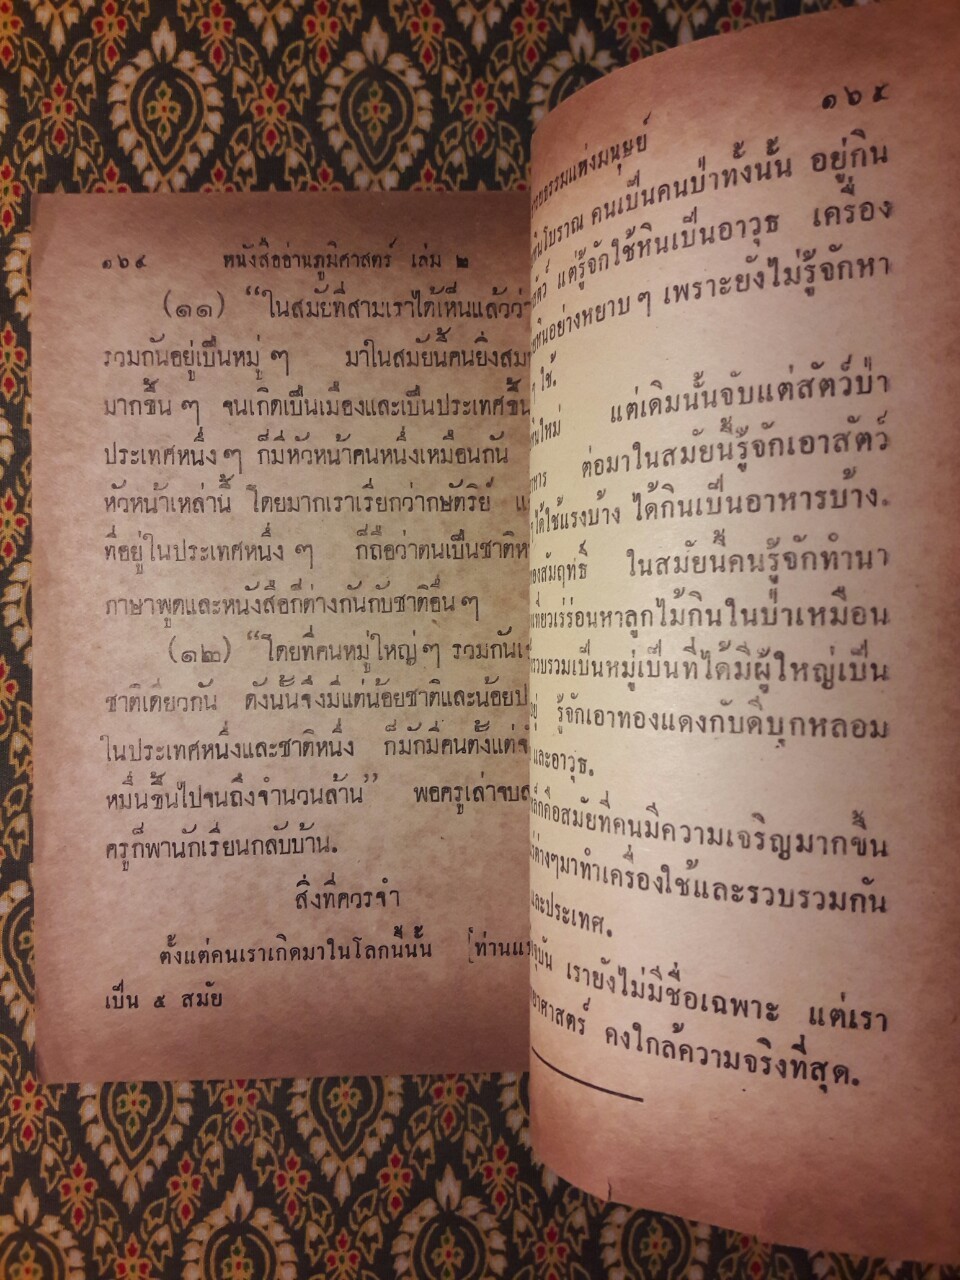 ๑๖๔ หนังสืออ่านภูมิศาสตร์ เล่ม ๒
(๑๑) “ในสมัยที่สามเราได้เห็นแล้วว่า
รวมกันอยู่เป็นหมู่ ๆ มาในสมัยนี้คนยิ่ง
มากขึ้น ๆ จนเกิดเป็นเมืองและเป็นประเทศขึ้น
ประเทศหนึ่ง ๆ ก็มีหัวหน้าคนหนึ่งเหมือนกัน
หัวหน้าเหล่านี้ โดยมากเราเรียกว่ากษัตริย์
ที่อยู่ในประเทศหนึ่ง ๆ ก็ถือว่าตนเป็นชาติ
ภาษาพูดและหนังสือก็ต่างกันกับชาติอื่น ๆ
(๑๒) “โดยที่คนหมู่ใหญ่ ๆ รวมกัน
ชาติเดียวกัน ดังนั้นจึงมีแต่น้อยชาติและน้อย
ในประเทศหนึ่งและชาติหนึ่ง ก็มักมีคนตั้งแต่
หมื่นขึ้นไปจนถึงจำนวนล้าน” พอครูเล่าจบ
ครูก็พานักเรียนกลับบ้าน.
สิ่งที่ควรจำ
ตั้งแต่คนเราเกิดมาในโลกนี้นั้น [ท่าน
เป็น ๕ สมัย
๑๖๕
แห่งมนุษย์
หินโบราณ คนเป็นคนป่าทั้งนั้น อยู่กิน
แต่รู้จักใช้หินเป็นอาวุธ เครื่อง
อย่างหยาบ ๆ เพราะยังไม่รู้จักหา
ใช้.
ใหม่ แต่เดิมนั้นจับแต่สัตว์ป่า
ต่อมาในสมัยนี้รู้จักเอาสัตว์
ได้ใช้แรงบ้าง ได้กินเป็นอาหารบ้าง.
สัมฤทธิ์ ในสมัยนี้คนรู้จักทำนา
เที่ยวเร่ร่อนหาลูกไม้กินในป่าเหมือน
รวบรวมเป็นหมู่เป็นที่ได้มีผู้ใหญ่เป็น
รู้จักเอาทองแดงกับดีบุกหลอม
และอาวุธ.
คือสมัยที่คนมีความเจริญมากขึ้น
ต่างๆมาทำเครื่องใช้และรวบรวมกัน
และประเทศ.
เรายังไม่มีชื่อเฉพาะ แต่เรา
คงใกล้ความจริงที่สุด.